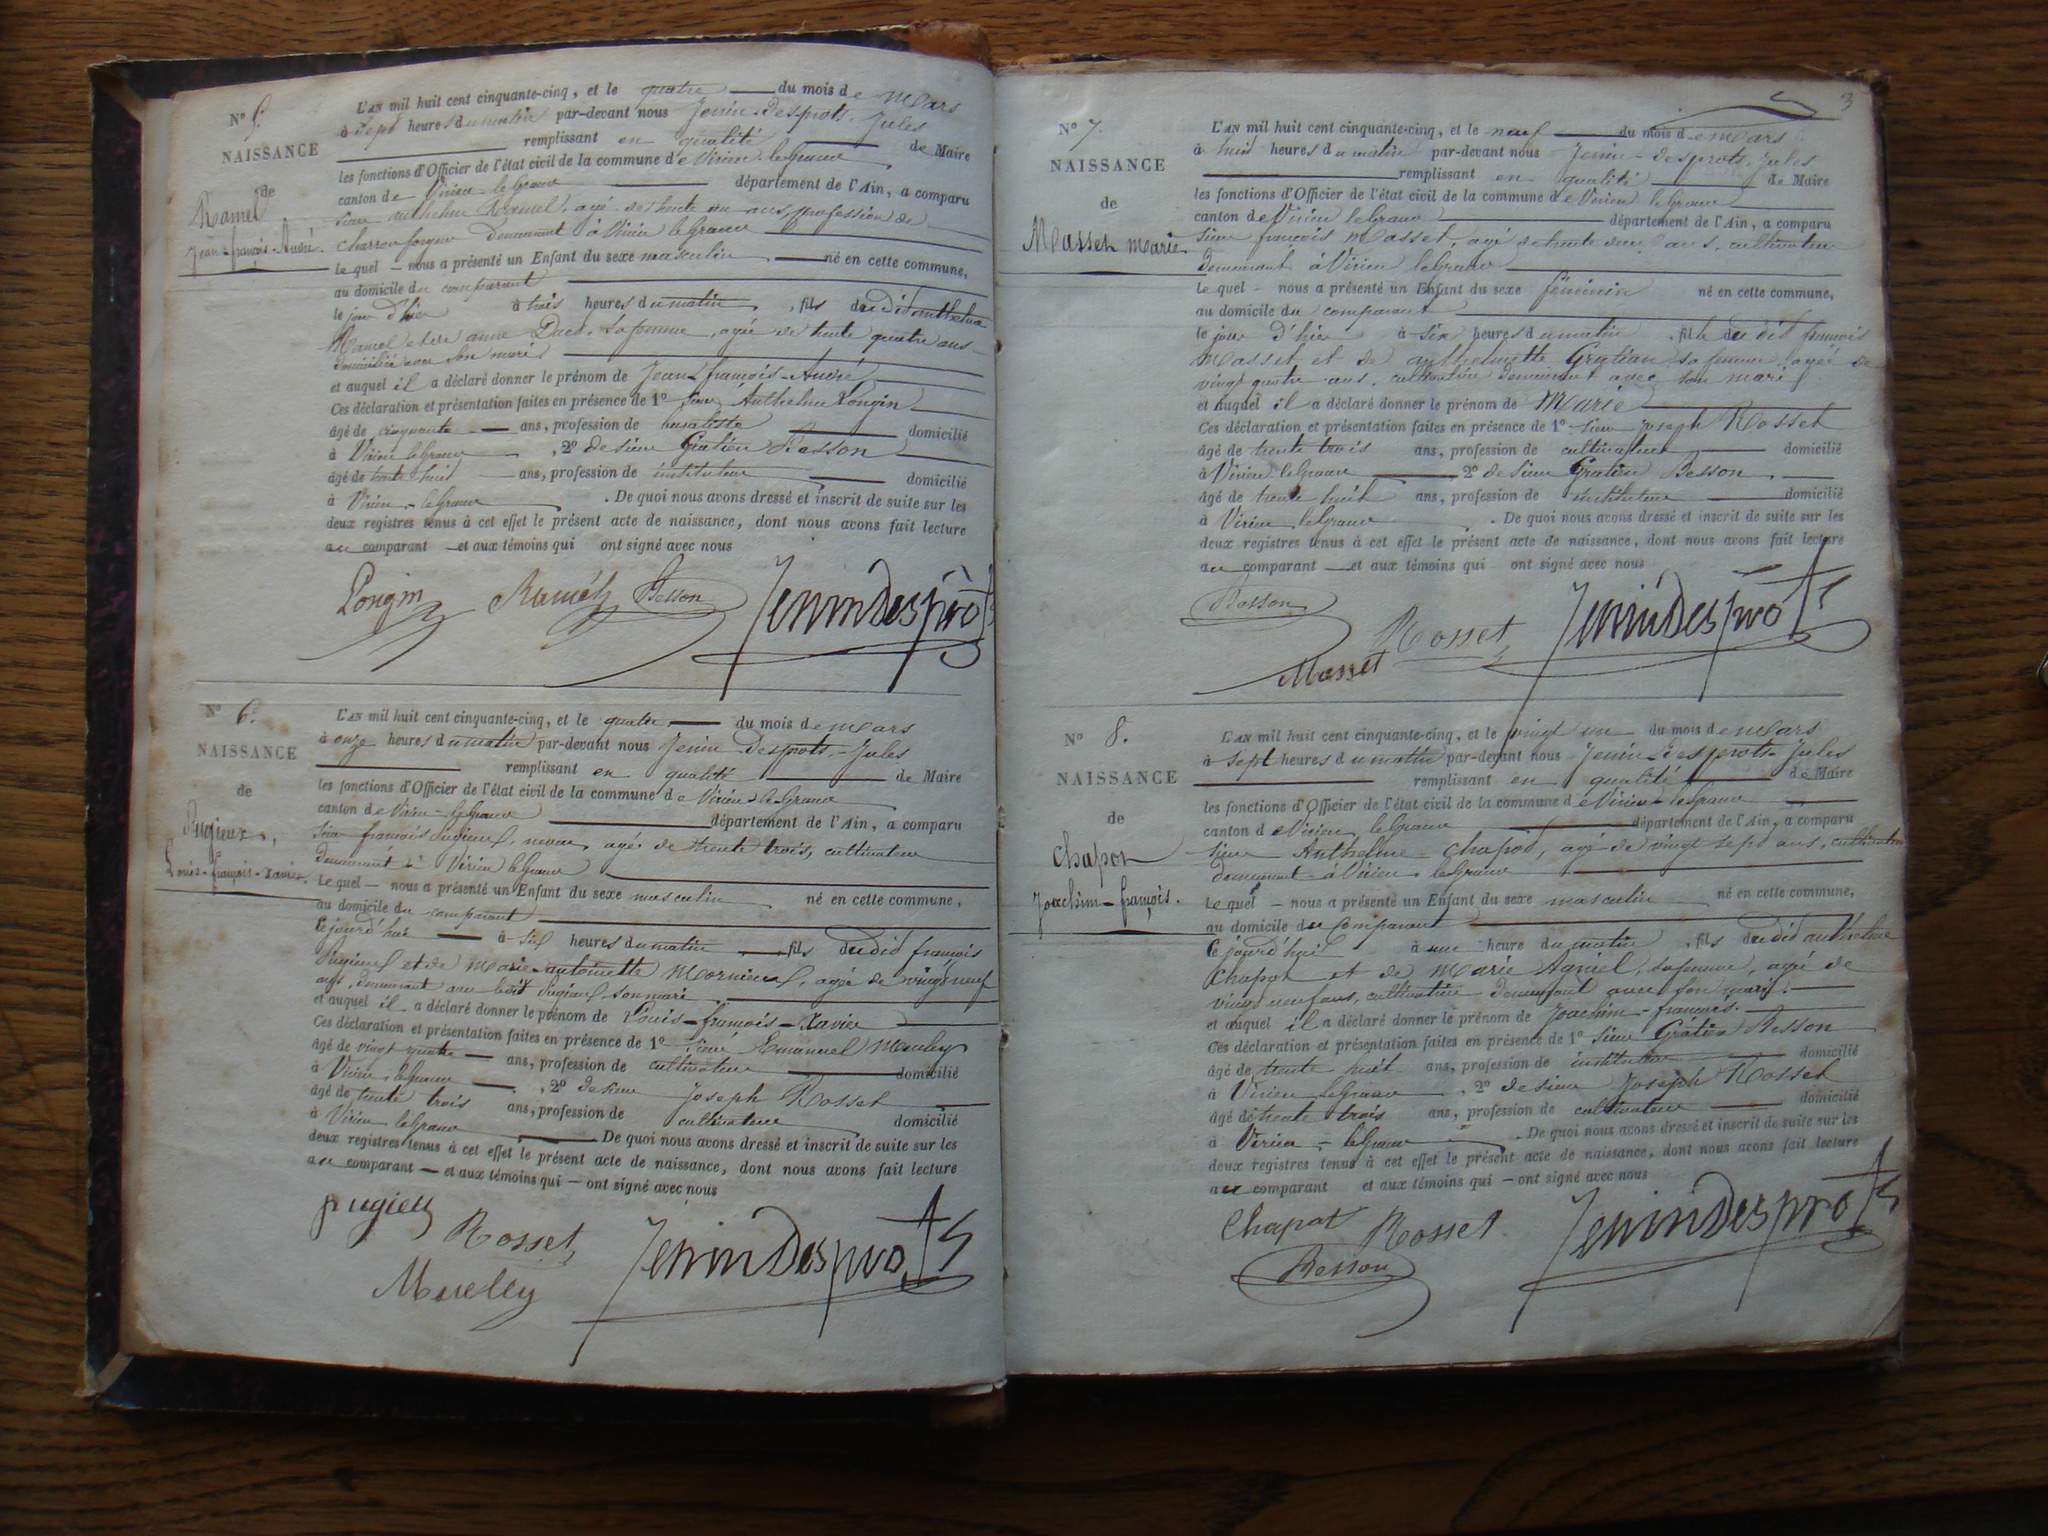 N° 5.
NAISSANCE
de
Ramel
Jean-françois-André.
L'AN mil huit cent cinquante-cinq, et le quatre du mois de Mars
à Sept heures du matin par-devant nous Jenin-Desprots Jules
remplissant en qualité de Maire
les fonctions d'Officier de l'état civil de la commune de Virieu-leGrand
canton de Virieu-leGrand département de l'Ain, a comparu
Sieur Anthelme Ramel, agé de trente un ans, profession de
Charron forgeur demeurant à Virieu le Grand
Le quel nous a présenté un Enfant du sexe masculin né en cette commune,
au domicile du comparant
le jour d'hier à trois heures du matin, fils du dit Anthelme
Ramel et de anne Ducd, sa femme, agée de trente quatre ans
domiciliée avec son mari
et auquel il a déclaré donner le prénom de Jean-françois-André
Ces déclaration et présentation faites en présence de 1° Sieur Anthelme Longin
âgé de cinquante ans, profession de domicilié
à Virieu leGrand, 2° de sieur Gratien Besson
âgé de trente huit ans, profession de instituteur domicilié
à Virieu-leGrand. De quoi nous avons dressé et inscrit de suite sur les
deux registres tenus à cet effet le présent acte de naissance, dont nous avons fait lecture
au comparant et aux témoins qui ont signé avec nous
Longin Ramel Besson JeninDesprots
N° 6.
NAISSANCE
de
Pugieux,
Louis-françois-Xavier.
L'AN mil huit cent cinquante-cinq, et le quatre du mois de Mars
à onze heures du matin par-devant nous Jenin Desprots-Jules
remplissant en qualité de Maire
les fonctions d'Officier de l'état civil de la commune de Virieu-leGrand
canton de Virieu-leGrand département de l'Ain, a comparu
Sieur françois Pugieux, agé de trente trois, cultivateur
demeurant à Virieu leGrand
Le quel nous a présenté un Enfant du sexe masculin né en cette commune,
au domicile du comparant
Cejourd'hui à six heures du matin, fils du dit françois
Pugieux et de Marie-antoinette Mornieux, agée de vingt neuf
ans, demeurant avec ledit Pugieux son mari
et auquel il a déclaré donner le prénom de Louis-françois-Xavier
Ces déclaration et présentation faites en présence de 1° Sieur Emanuel
âgé de vingt quatre ans, profession de cultivateur domicilié
à Virieu-leGrand, 2° de sieur Joseph Rosset
âgé de trente trois ans, profession de cultivateur domicilié
à Virieu leGrand De quoi nous avons dressé et inscrit de suite sur les
deux registres tenus à cet effet le présent acte de naissance, dont nous avons fait lecture
au comparant et aux témoins qui ont signé avec nous
pugieux Rosset JeninDesprots
3
N° 7.
NAISSANCE
de
Masset Marie
L'AN mil huit cent cinquante-cinq, et le neuf du mois de Mars
à huit heures du matin par-devant nous Jenin-Desprots, Jules
remplissant en qualité de Maire
les fonctions d'Officier de l'état civil de la commune de Virieu leGrand
canton de Virieu leGrand département de l'Ain, a comparu
Sieur françois Masset, agé de trente deux ans, cultivateur
demeurant à Virieu leGrand
Le quel nous a présenté un Enfant du sexe féminin né en cette commune,
au domicile du comparant
le jour d'hier à six heures du matin, fille du dit françois
Masset, et de anthelmette Gratian sa femme agée de
vingt quatre ans, cultivatrice demeurant avec son mari
et auquel il a déclaré donner le prénom de Marie
Ces déclaration et présentation faites en présence de 1° Sieur Joseph Rosset
âgé de trente trois ans, profession de cultivateur domicilié
à Virieu leGrand 2° de sieur Gratien Besson
âgé de trente huit ans, profession de instituteur domicilié
à Virieu leGrand. De quoi nous avons dressé et inscrit de suite sur les
deux registres tenus à cet effet le présent acte de naissance, dont nous avons fait lecture
au comparant et aux témoins qui ont signé avec nous
Besson Rosset JeninDesprots
Masset
N° 8.
NAISSANCE
de
Chapot
Joachim-françois.
L'AN mil huit cent cinquante-cinq, et le vingt un du mois de Mars
à Sept heures du matin par-devant nous Jenin-Desprots Jules
remplissant en qualité de Maire
les fonctions d'Officier de l'état civil de la commune de Virieu leGrand
canton de Virieu leGrand département de l'Ain, a comparu
Sieur Anthelme Chapot, agé de vingt sept ans, cultivateur
demeurant à Virieu leGrand
Le quel nous a présenté un Enfant du sexe masculin né en cette commune,
au domicile du comparant
Cejourd'hui à une heure du matin, fils du dit anthelme
Chapot et de Marie Agniel, sa femme, agée de
vingt neuf ans, cultivatrice demeurant avec son mari
et auquel il a déclaré donner le prénom de Joachim-françois.
Ces déclaration et présentation faites en présence de 1° Sieur Gratien Besson
âgé de trente huit ans, profession de instituteur domicilié
à Virieu leGrand, 2° de sieur Joseph Rosset
âgé de trente trois ans, profession de cultivateur domicilié
à Virieu-leGrand. De quoi nous avons dressé et inscrit de suite sur les
deux registres tenus à cet effet le présent acte de naissance, dont nous avons fait lecture
au comparant et aux témoins qui ont signé avec nous
Chapot Rosset JeninDesprots
Besson